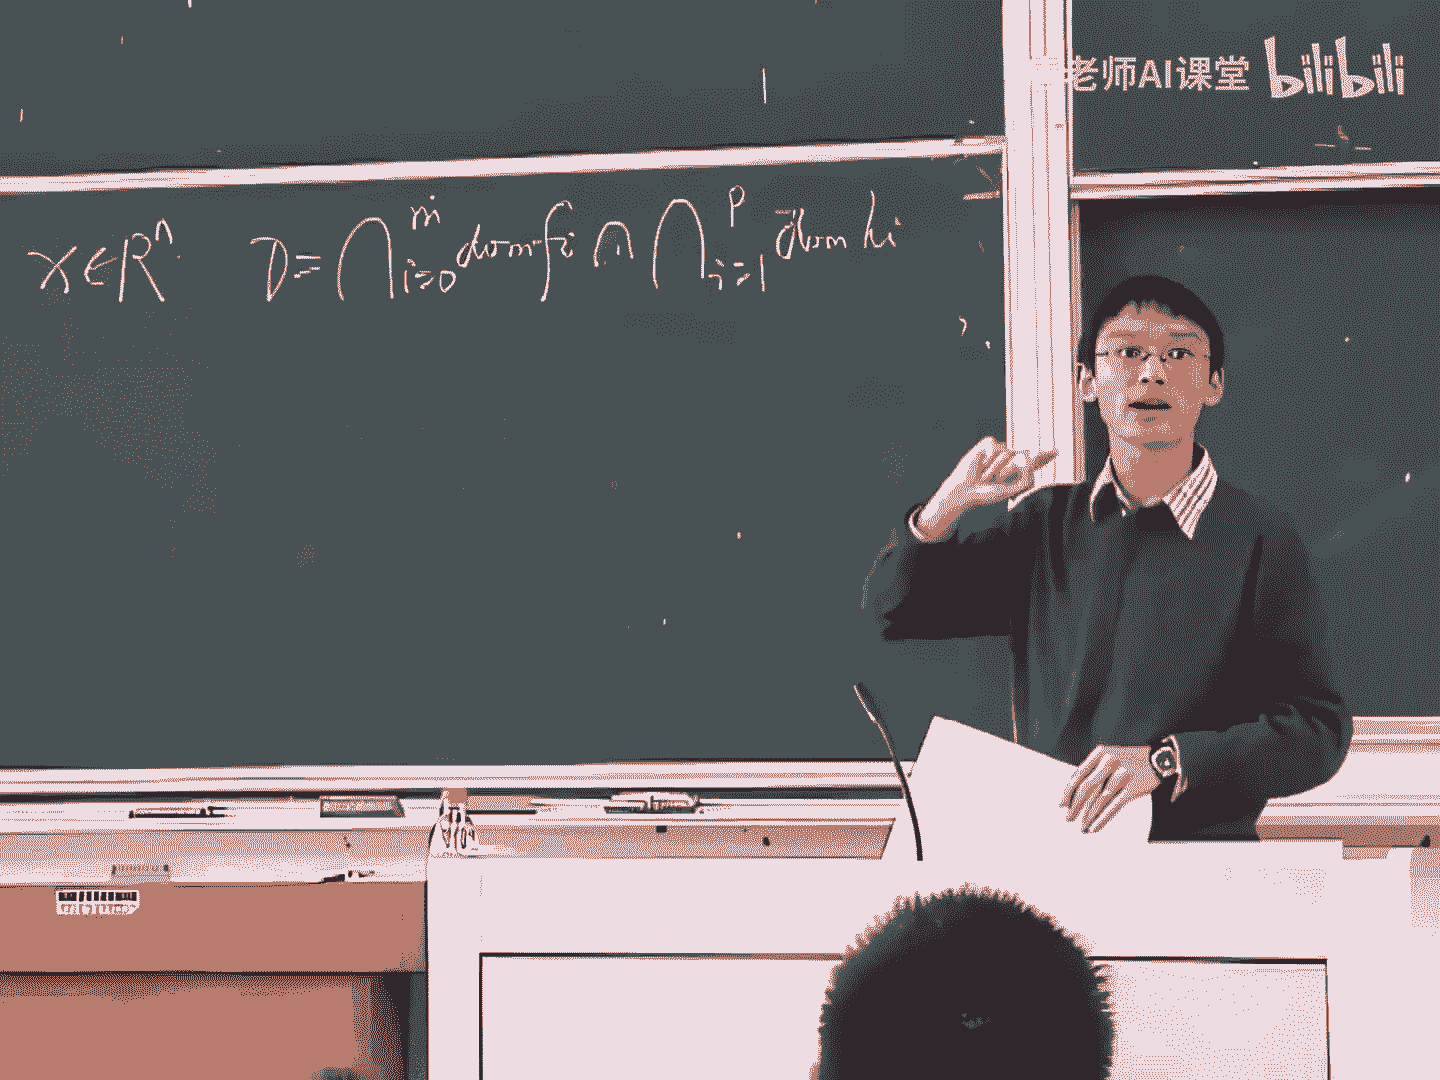 老师AI课堂 bilibili
x∈Rⁿ D=⋂ᵢ₌₀ᵐ dom fᵢ ∩ ⋂ᵢ₌₁ᵖ dom hᵢ